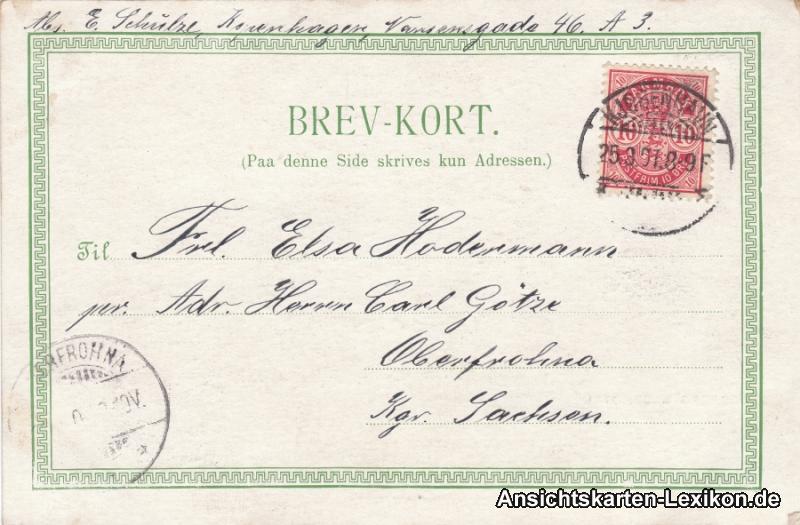 Abs. E. Schülze, Kopenhagen, Vansensgade 46. A 3.
BREV-KORT.
(Paa denne Side skrives kun Adressen.)
10 10
KJØBENHAVN.
25.9.01.8-9 F
Til Frl. Elsa Hodermann
pr. Adr. Herrn Carl Götze
Oberfrohna
Kgr. Sachsen.
RFROHNA
10V.
Ansichtskarten-Lexikon.de